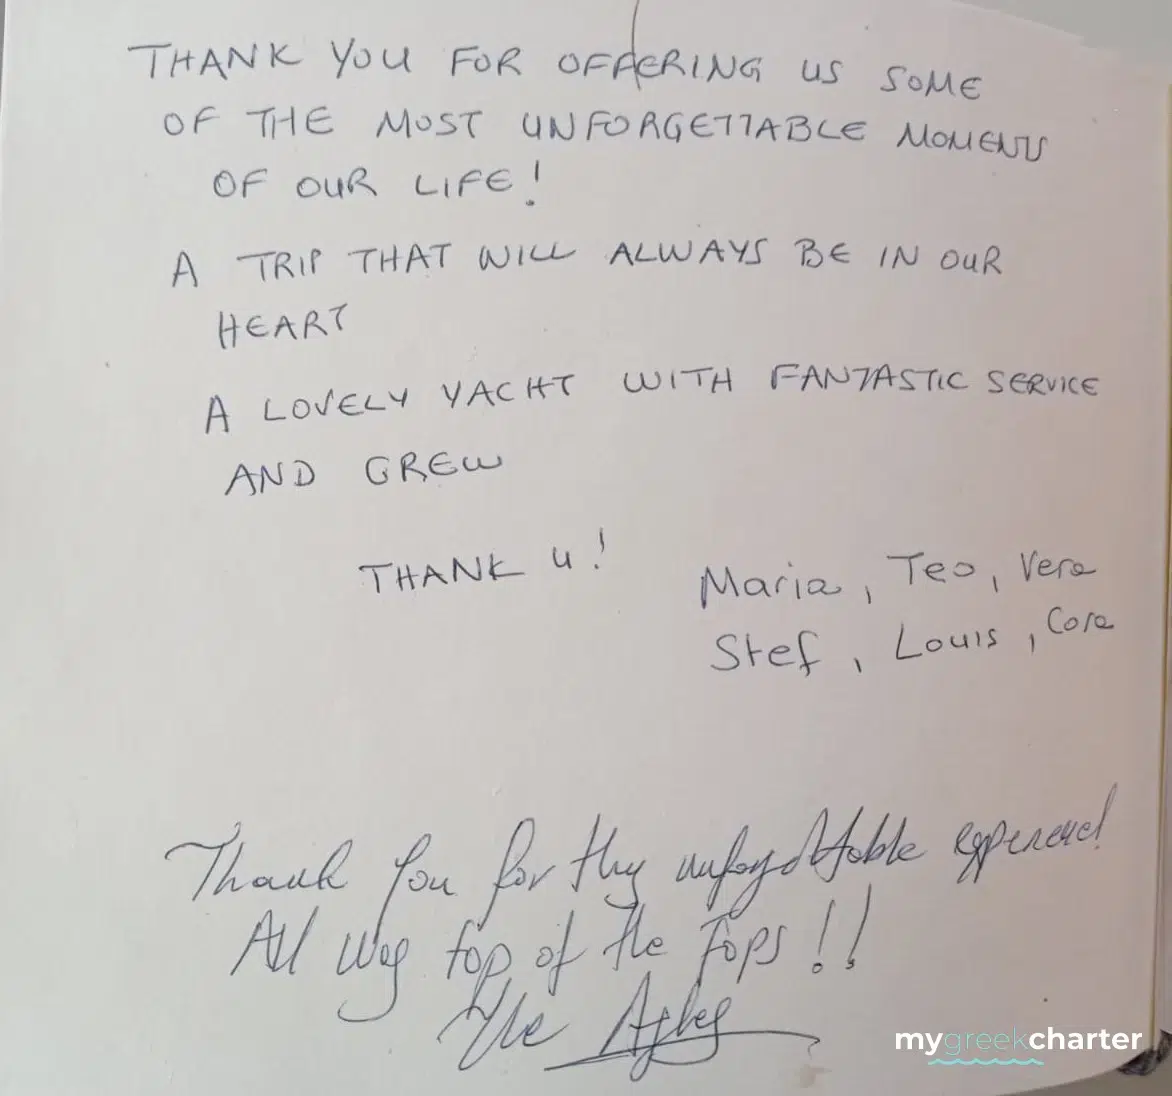 THANK YOU FOR OFFERING US SOME
OF THE MOST UNFORGETTABLE MOMENTS
OF OUR LIFE!
A TRIP THAT WILL ALWAYS BE IN OUR
HEART
A LOVELY YACHT WITH FANTASTIC SERVICE
AND CREW
THANK U!
Maria, Teo, Vera
Stef, Louis, Cora
Thank you for this unforgettable experience!
All was top of the Tops!!
The
mygreekcharter